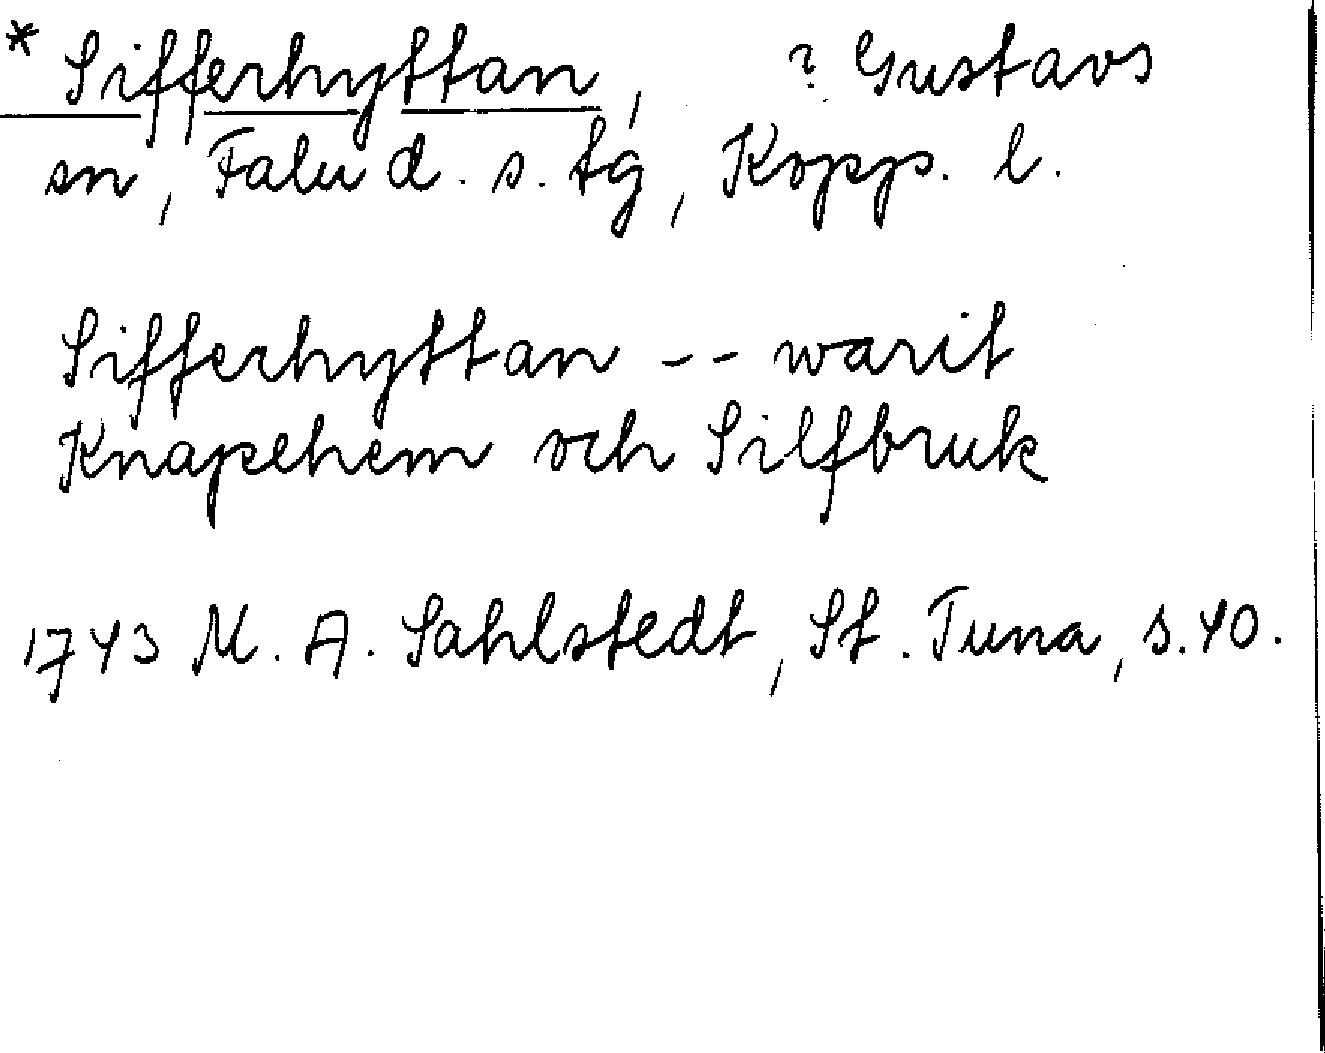 * Sifferhyttan, ? Gustavs
sn, Falu d. s. tg, Kopp. l.
Sifferhyttan -- warit
Knapehem och Silfbruk
1743 M. A. Sahlstedt, St. Tuna, s. 40.